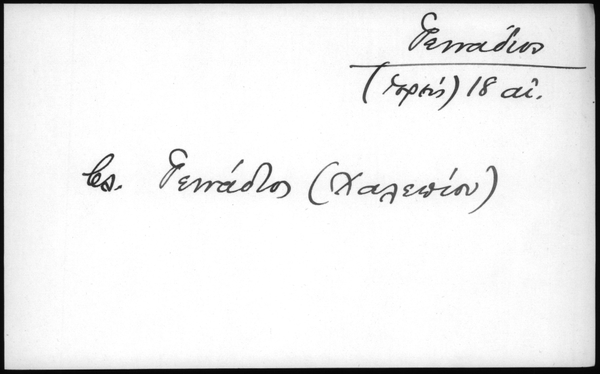 Γεννάδιος
(ἱερεύς) 18 αἰ.
βλ. Γεννάδιος (Χαλεπίου)